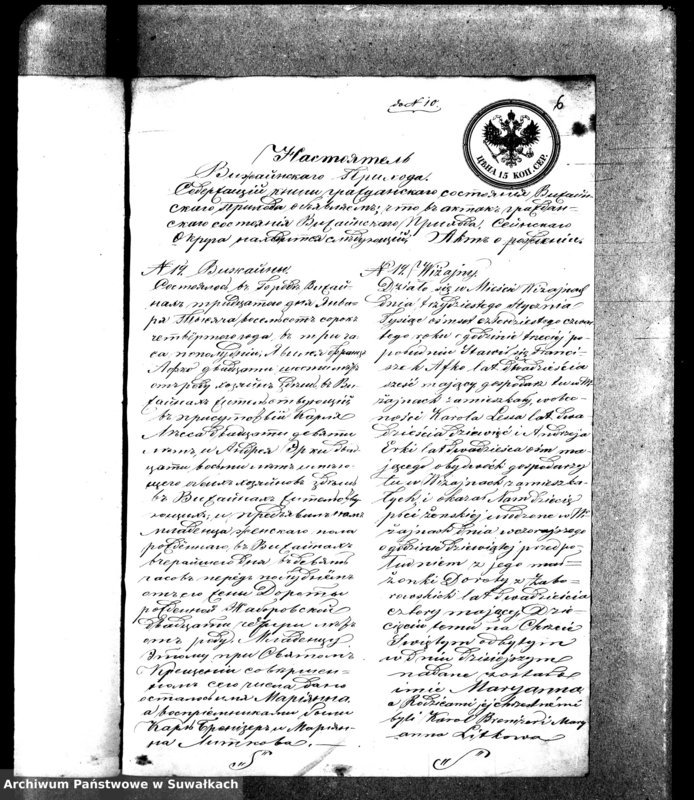 до № 10.
6
ЦѢНА 15 КОП. СЕР.
Настоятель
Вижайнскаго Прихода.
Содержащій книги гражданскаго состоянія Вижайн-
скаго Прихода объявляетъ, что въ актахъ граждан-
скаго состоянія Вижайнскаго Прихода, Сейнскаго
Округа находится слѣдующій Актъ о рожденіи
№ 12 Вижайны.
Состоялось въ Городѣ Вижай-
нахъ тридцатаго дня Янва-
ря Тысяча восемьсотъ сорокъ
четвертаго года, въ три ча-
са пополудни. Явился Францъ
Афко двадцати шести лѣтъ
отъ роду хозяинъ здѣсь въ Ви-
жайнахъ жительствующій
въ присутствіи Карла
Лесса двадцати девяти
лѣтъ и Андрея Эрки двад-
цати восьми лѣтъ имѣю-
щаго обоихъ хозяиновъ здѣсь
въ Вижайнахъ жительству-
ющихъ, и предъявилъ намъ
младенца женскаго пола
рожденнаго въ Вижайнахъ
вчерашняго дня въ девять
часовъ передъ полуднемъ
отъ его жены Дороты
рожденной Жаборовской
двадцати четыре лѣтъ
отъ роду. Младенцу
этому при Святомъ
Крещеніи совершен-
номъ сего числа дано
имя Маріянна,
а воспріемниками были
Карлъ Бронзертъ и Маріян-
на Литкова.
№ 12 Wiżajny.
Działo się w Mieście Wiżajnach
dnia trzydziestego stycznia
Tysiąc ośmset czterdziestego czwar-
tego roku o godzinie trzeciej po-
południu. Stawił się Franci-
szek Afko lat dwadzieścia
sześć mający gospodarz tu w Wi-
żajnach zamieszkały, w obec-
ności Karola Lessa lat dwa-
dzieścia dziewięć i Andrzeja
Erki lat dwadzieścia ośm ma-
jącego obydwóch gospodarzy
tu w Wiżajnach zamieszka-
łych i okazał Nam dziecię
płci żeńskiej urodzone w Wi-
żajnach dnia wczorajszego
o godzinie dziewiątej przed po-
łudniem z jego mał-
żonki Doroty z Żabo-
rowskich lat dwadzieścia
cztery mającej. Dzie-
cięciu temu na Chrzcie
Świętym odbytym
w dniu dzisiejszym
nadane zostało
imie Maryanna
a Rodzicami jej chrzestnemi
byli Karol Bronzert i Mary-
anna Litkowa
Archiwum Państwowe w Suwałkach